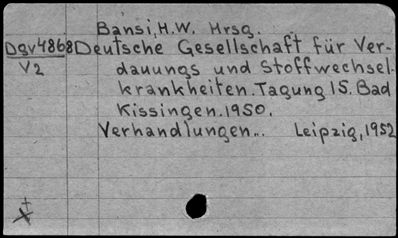 Bansi, H.W. Hrsg.
Dgv4868 Deutsche Gesellschaft für Ver-
V2 dauungs und Stoffwechsel-
krankheiten. Tagung 15. Bad
Kissingen. 1950.
Verhandlungen... Leipzig, 1952